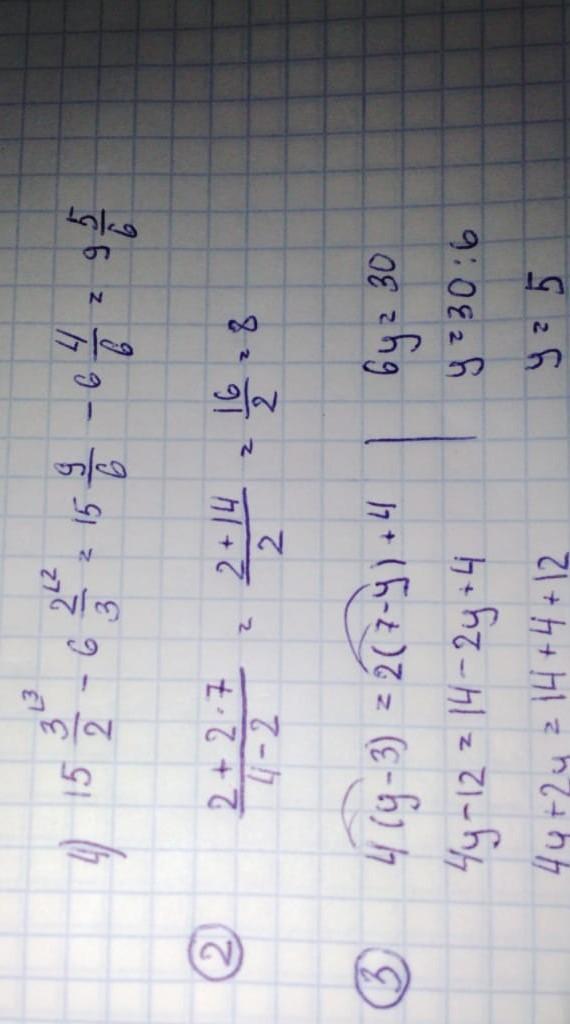 4) 15 3/2 ⌊3 - 6 2/3 ⌊2 = 15 9/6 - 6 4/6 = 9 5/6
② (2 + 2 · 7)/(4 - 2) = (2 + 14)/2 = 16/2 = 8
③ 4(y - 3) = 2(7 - y) + 4 | 6y = 30
4y - 12 = 14 - 2y + 4 | y = 30 : 6
4y + 2y = 14 + 4 + 12 y = 5